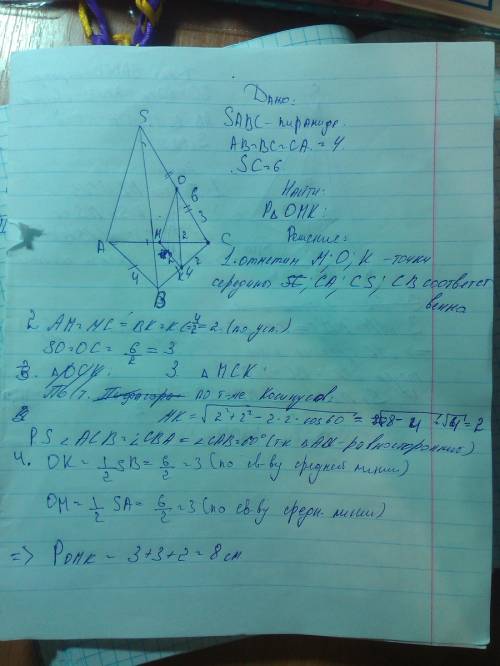 Дано:
SABC - пирамида.
AB=BC=CA.=4.
SC=6
Найти:
P△ OMK:
Решение:
1. отметим M; O; K - точки
середины CA; CS; CB соответст
венно
2 AM=MC=BK=KC=4/2=2. (по усл.)
SO=OC=6/2=3
3. △MCK:
по т-ме косинусов:
MK=√2²+2²-2·2·2·cos60°=√8-4=√4=2
PS ∠ACB=∠CBA=∠CAB=60°(т.к △ABC-равносторонний)
4. OK=1/2 SB=6/2=3 (по св-ву средней линии)
OM=1/2 SA=6/2=3 (по св-ву средн. линии)
=> POMK = 3+3+2=8см
S
O
6
3
A
M
2
C
4
2
4
B